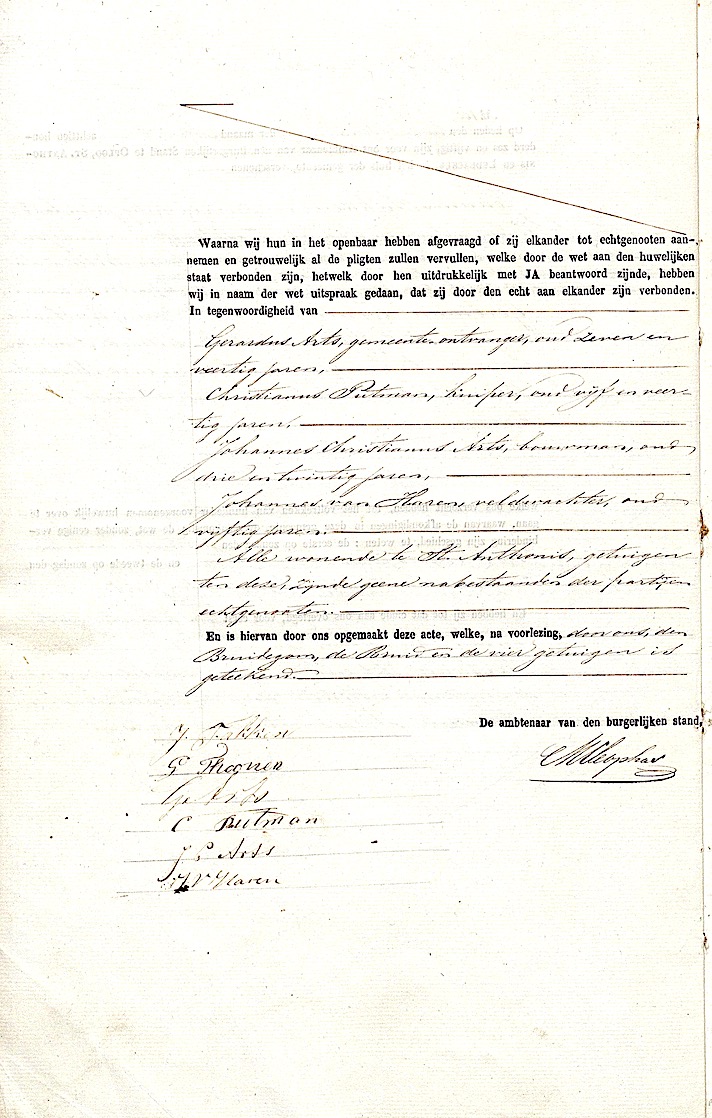 Waarna wij hun in het openbaar hebben afgevraagd of zij elkander tot echtgenooten aan-
nemen en getrouwelijk al de pligten zullen vervullen, welke door de wet aan den huwelijken
staat verbonden zijn, hetwelk door hen uitdrukkelijk met JA beantwoord zijnde, hebben
wij in naam der wet uitspraak gedaan, dat zij door den echt aan elkander zijn verbonden.
In tegenwoordigheid van
Gerardus Arts, gemeente-ontvanger, oud zeven en
veertig jaren,
Christianus Putman, kuiper, oud vijf en veer-
tig jaren,
Johannes Christianus Arts, bouwman, oud
drie en twintig jaren,
Johannes van Haren, veldwachter, oud
vyftig jaren.
Alle wonende te St. Anthonis, getuigen
ten deze, zijnde geene nabestaanden der partijen
echtgenooten.
En is hiervan door ons opgemaakt deze acte, welke, na voorlezing, door ons, den
Bruidegom, de Bruid en de vier getuigen is
geteekend.
De ambtenaar van den burgerlijken stand,
J.
G
C Putman
J C Arts
J V Haren